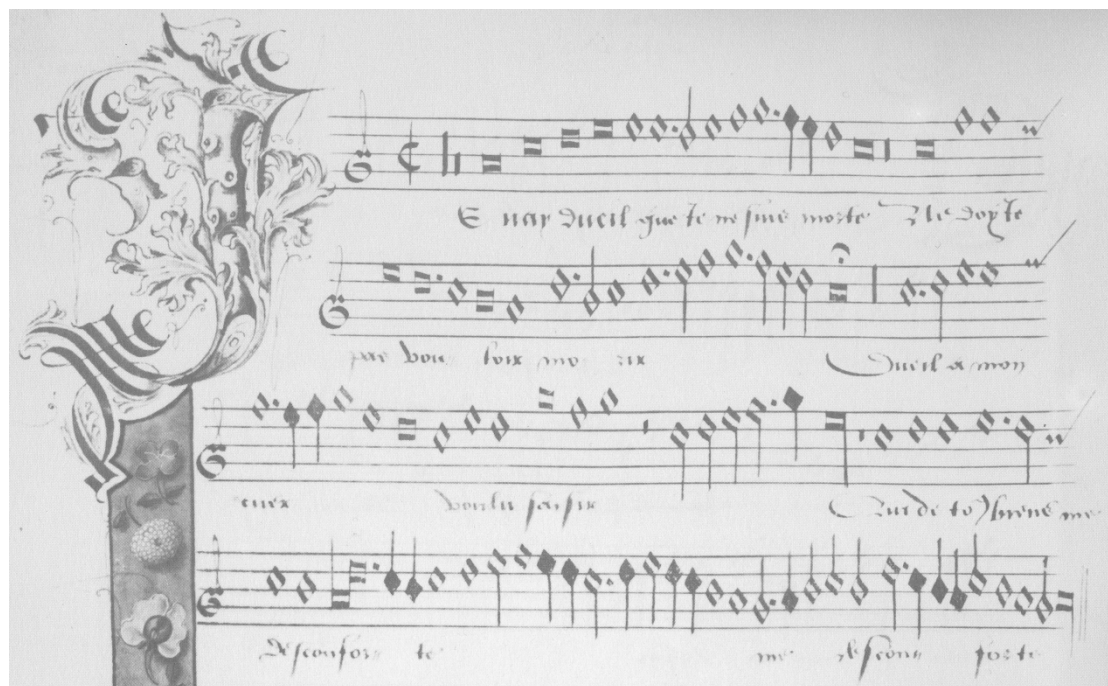 E nay dueil que ie ne suis morte Ne doy ie
pas vou loir mo rir Dueil a mon
cuer voulu saisir Qui de to9 biens me
desconfor te me descon forte